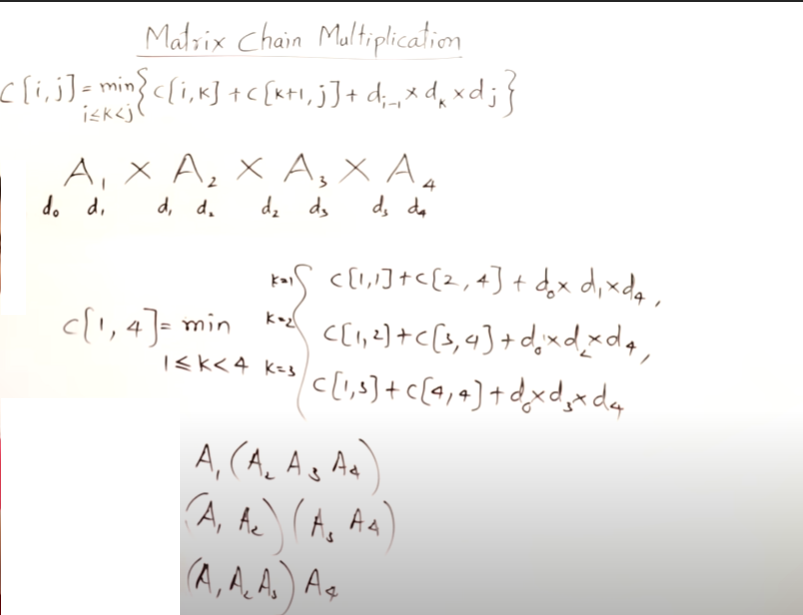 Matrix Chain Multiplication
C[i,j] = min { C[i,k] + C[k+1,j] + dᵢ₋₁ × dₖ × dⱼ }
i≤k<j
A₁ × A₂ × A₃ × A₄
d₀ d₁ d₁ d₂ d₂ d₃ d₃ d₄
k=1 C[1,1] + C[2,4] + d₀ × d₁ × d₄ ,
C[1,4] = min k=2 C[1,2] + C[3,4] + d₀ × d₂ × d₄ ,
1≤k<4 k=3 C[1,3] + C[4,4] + d₀ × d₃ × d₄
A₁ (A₂ A₃ A₄)
(A₁ A₂) (A₃ A₄)
(A₁ A₂ A₃) A₄